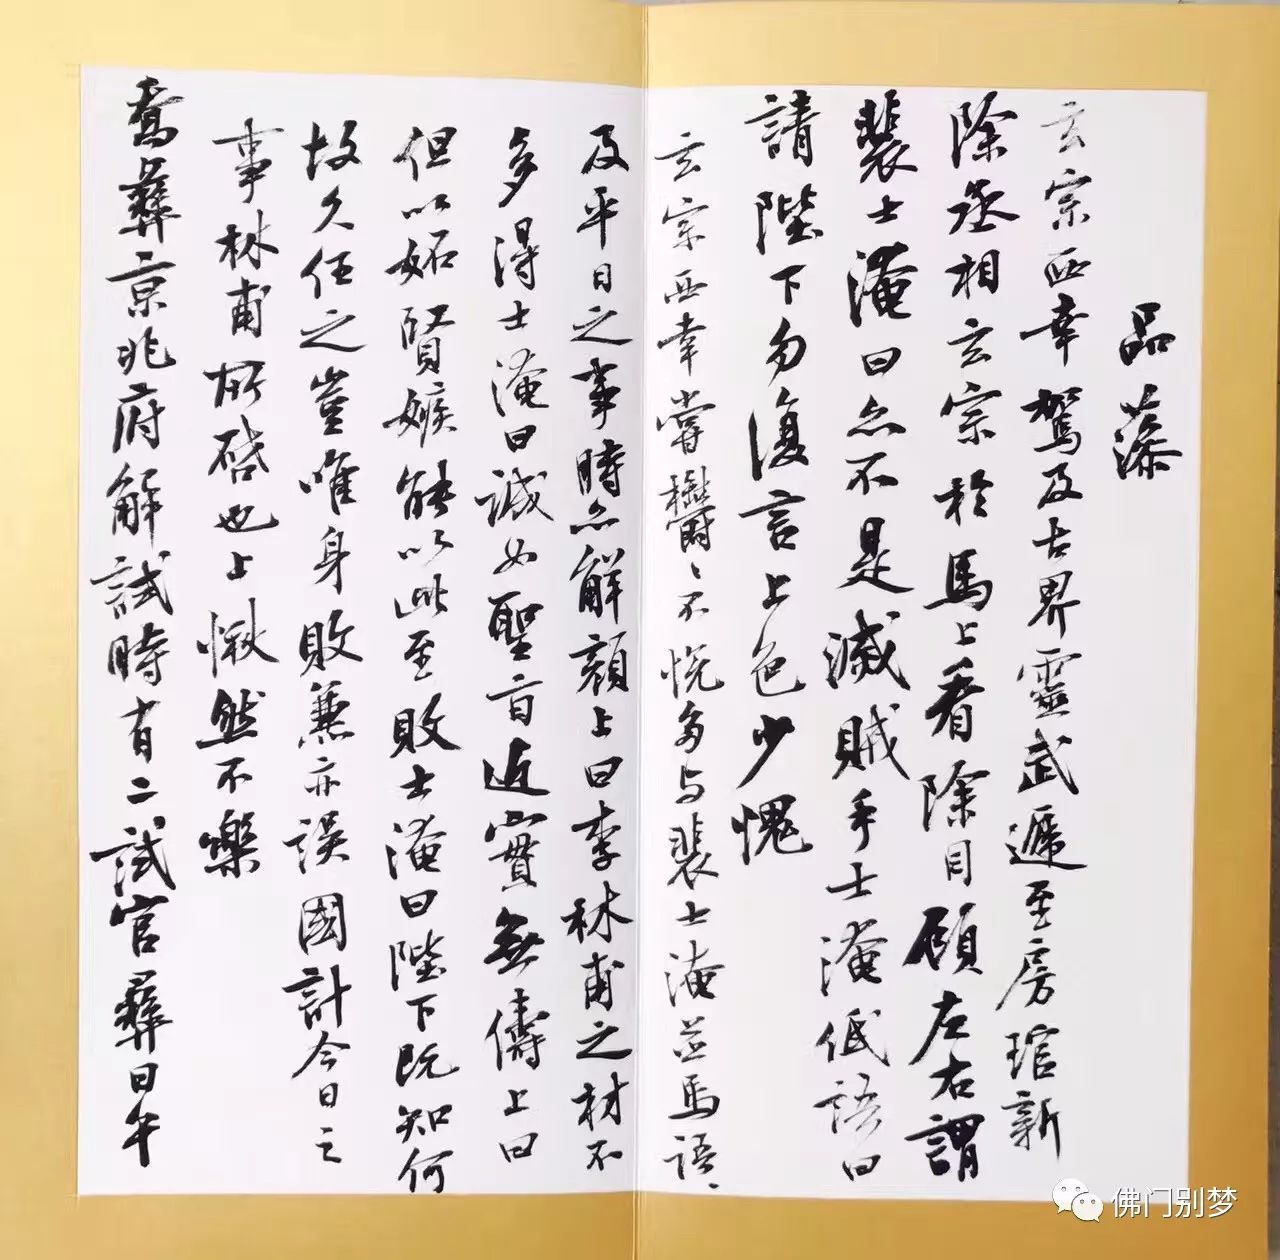 品藻
玄宗西幸駕及古界靈武遞至房琯新
除丞相玄宗於馬上看除目顧左右謂
裴士淹曰亦不是滅賊手士淹低語曰
請陛下勿復言上色少愧
玄宗西幸嘗鬱〻不悦多与裴士淹並馬語〻
及平日之事時亦解顔上曰李林甫之材不
多得士淹曰誠如聖旨近實無儔上曰
但以妬賢嫉能以此至敗士淹曰陛下既知何
故久任之豈唯身敗兼亦誤國計今日之
事林甫所啓也上愀然不樂
喬彝京兆府解試時有二試官彝日午
佛门别梦